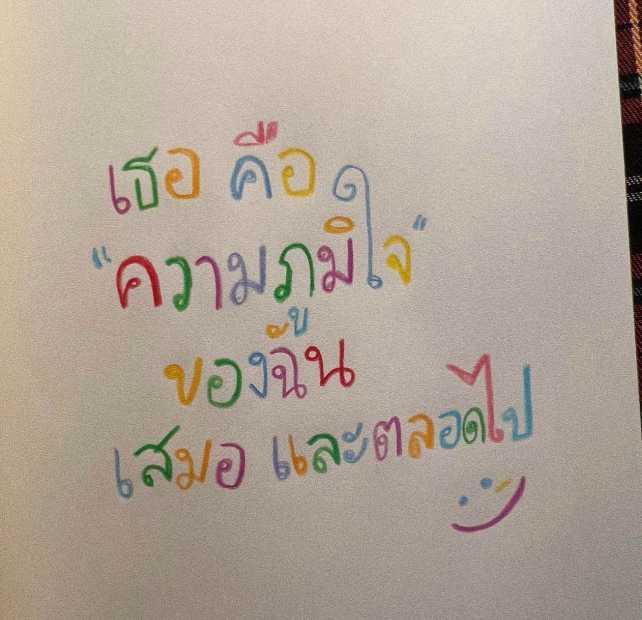 เธอ คือ
"ความภูมิใจ"
ของฉัน
เสมอ และตลอดไป